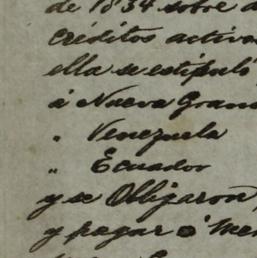 de 1834 sobre a
créditos activo
ella se estipuló
á Nueva Gran
" Venezuela
" Ecuador
y se obligaron,
y pagar ó